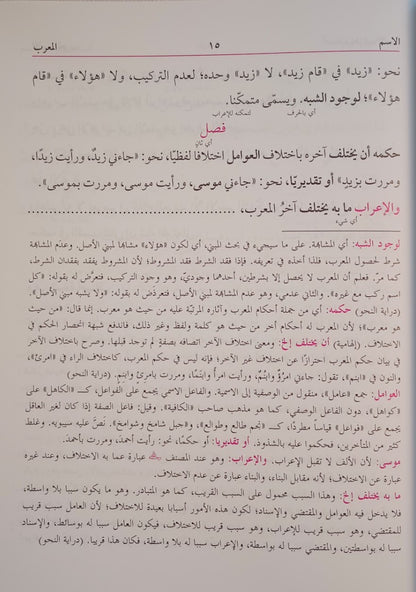 الاسم ١٥ المعرب
نحو: «زيد» في «قام زيد»، لا «زيد» وحده؛ لعدم التركيب، ولا «هؤلاء» في «قام
هؤلاء»؛ لوجود الشبه. ويسمّى متمكّنا.
أي بالحرف لتمكنه للإعراب
فصل
أي ثان
حكمه أن يختلف آخره باختلاف العوامل اختلافا لفظيّا، نحو: «جاءني زيدٌ، ورأيت زيدًا،
ومررت بزيدٍ» أو تقديريا، نحو: «جاءني موسى، ورأيت موسى، ومررت بموسى».
والإعراب ما به يختلف آخرُ المعرب، ........................
أي شيء
لوجود الشبه: أي المشابهة. على ما سيجيء في بحث المبني، أي لكون «هؤلاء» مشابها لمبني الأصل. وعدم المشابهة
شرط لحصول المعرب، فلذا أخذه في تعريفه. فإذا فقد الشرط فقد المشروط؛ لأن المشروط يفقد بفقدان الشرط،
كما مرّ. فعلم أن المعرب لا يحصل إلا بشرطين، أحدهما وجوديّ، وهو وجود التركيب، فتعرّض له بقوله: «كل
اسم ركب مع غيره». والثاني عدمي، وهو عدم المشابهة لمبني الأصل، فتعرض له بقوله: «ولا يشبه مبني الأصل».
(دراية النحو) حكمه: أي من جملة أحكام المعرب وآثاره المرتبة عليه من حيث هو معرب. إنما قال: «من حيث
هو معرب»؛ لأن للمعرب له أحكام أخر من حيث هو كلمة ولفظ وغير ذلك، فاندفع شبهة انحصار الحكم في
الاختلاف. (إلهامية) أن يختلف إلخ: ومعنى اختلاف الآخر اتصافه بصفة لم توجد قبلها. وصرح باختلاف الآخر
في بيان حكم المعرب احترازًا عن اختلاف غير الآخر؛ فإنه ليس في حكم المعرب، كاختلاف الراء في «امرئ»،
والنون في «ابنم»، تقول: جاءني امرُؤٌ وابنُمٌ، ورأيت امرَأً وابنَمًا، ومررت بامرِئٍ وابنِمٍ. (دراية النحو)
العوامل: جمع «عامل»، منقول من الوصفية إلى الاسمية. والفاعل الاسمي يجمع على الفواعل، كـ «الكاهل» على
«كواهل»، دون الفاعل الوصفي، كما هو مذهب صاحب «الكافية». وقيل: فاعل الصفة إذا كان لغير العاقل
يجمع على «فواعل» قياسا مطردًا، كـ «نجم طالع وطوالع»، و«جبل شامخ وشوامخ». نصّ عليه سيبويه. وغلط
كثير من المتأخرين، فحكموا عليه بالشذوذ. أو تقديريا: أو حكمًا، نحو: رأيت أحمدَ، ومررت بأحمدَ.
موسى: لأن الألف لا تقبل الإعراب. والإعراب: وهو عند المصنف عبارة عما به الاختلاف، وعند غيره
عبارة عن الاختلاف؛ لأنه مقابل البناء، والبناء عبارة عن عدم الاختلاف.
ما به يختلف إلخ: وهذا السبب محمول على السبب القريب، كما هو المتبادر. وهو ما يكون سببا بلا واسطة،
فلا يدخل فيه العوامل والمقتضي والإسناد؛ لكون هذه الأمور أسبابا بعيدة للاختلاف؛ لأن العامل سبب قريب
للمقتضي، وهو سبب قريب للإعراب، وهو سبب قريب للاختلاف، فيكون العامل سببا له بوسائط، والإسناد
سببا له بواسطتين، والمقتضي سببا له بواسطة، والإعراب سببا له بلا واسطة، فكان هذا قريبا. (دراية النحو)